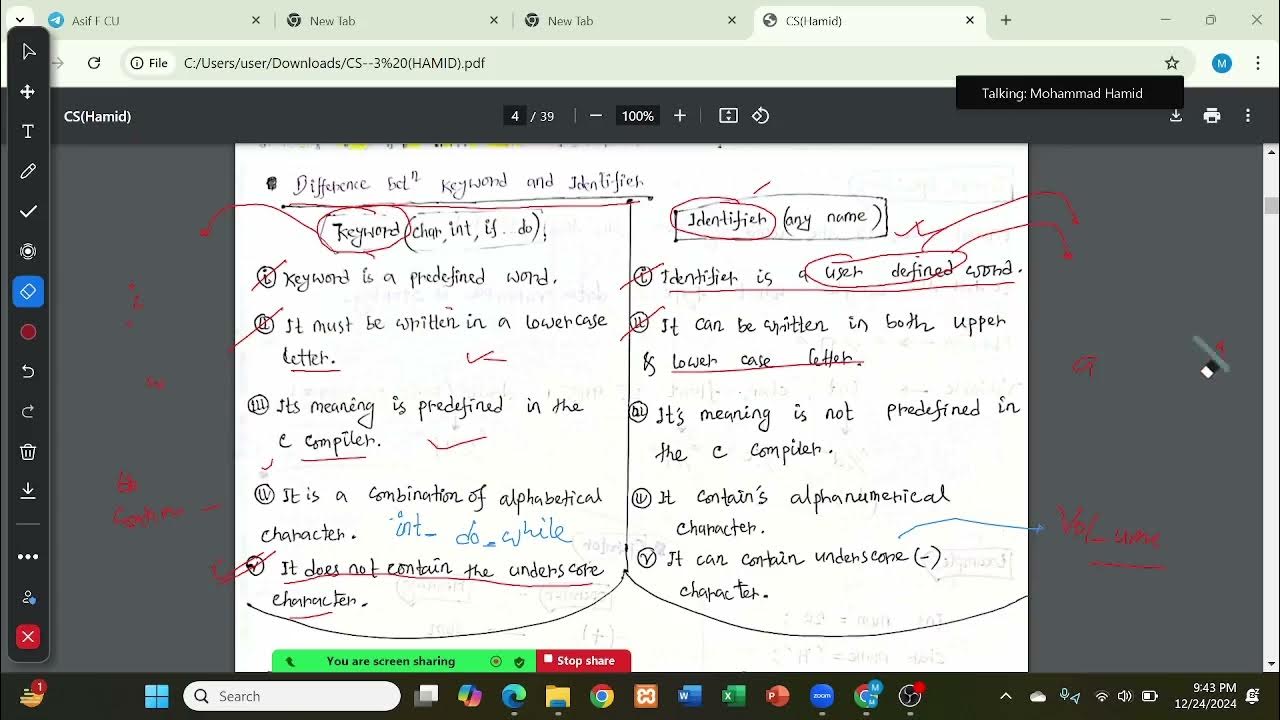 Asif F CU
New Tab
New Tab
CS(Hamid)
File
C:/Users/user/Downloads/CS--3%20(HAMID).pdf
M
Talking: Mohammad Hamid
CS(Hamid)
4 / 39
100%
Difference betⁿ Keyword and Identifier
Keyword (char, int, if... do):
i Keyword is a predefined word.
ii It must be written in a lowercase
letter.
iii Its meaning is predefined in the
C compiler.
iv It is a combination of alphabetical
character. int_ do_while
v It does not contain the underscore
character.
Identifier (any name)
i Identifier is a user defined word.
ii It can be written in both upper
& lower case letter.
iii It's meaning is not predefined in
the C compiler.
iv It contain's alphanumerical
character.
v It can contain underscore (-)
character.
You are screen sharing
Stop share
T
1
Search
zoom
9:43 PM
12/24/2024